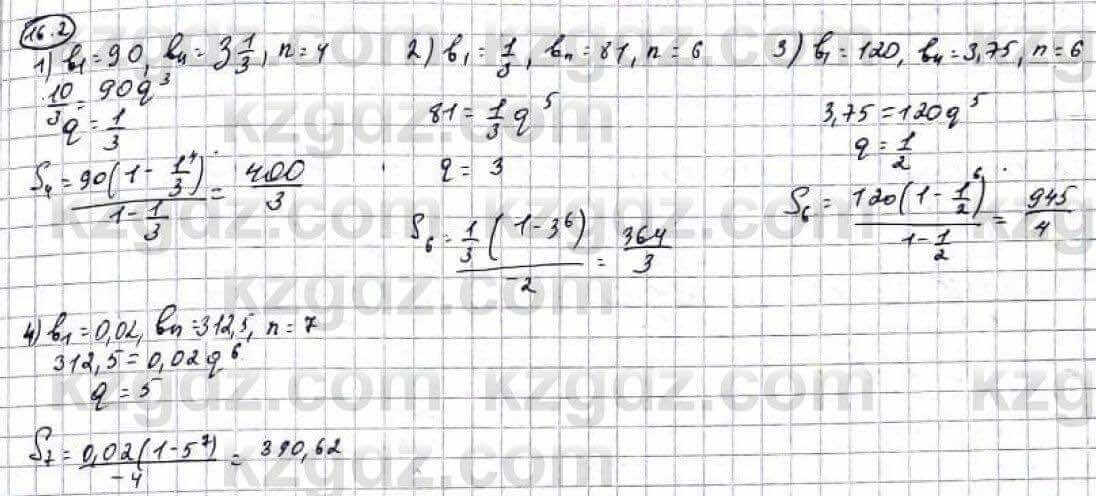 16.2
1) b₁ = 90, bₙ = 3 1/3, n = 4
10/3 = 90q³
q = 1/3
S₄ = 90(1 - 1/3⁴) / (1 - 1/3) = 400/3
2) b₁ = 1/3, bₙ = 81, n = 6
81 = 1/3 q⁵
q = 3
S₆ = 1/3 (1 - 3⁶) / -2 = 364/3
3) b₁ = 120, bₙ = 3,75, n = 6
3,75 = 120q⁵
q = 1/2
S₆ = 120(1 - 1/2⁶) / (1 - 1/2) = 945/4
4) b₁ = 0,02, bₙ = 312,5, n = 7
312,5 = 0,02q⁶
q = 5
S₇ = 0,02(1 - 5⁷) / -4 = 390,62
kzgdz.com kzgdz.com kzgdz.com
kzgdz.com kzgdz.com
kzgdz.com kzgdz.com kzgdz.com
kzgdz.com kzgdz.com